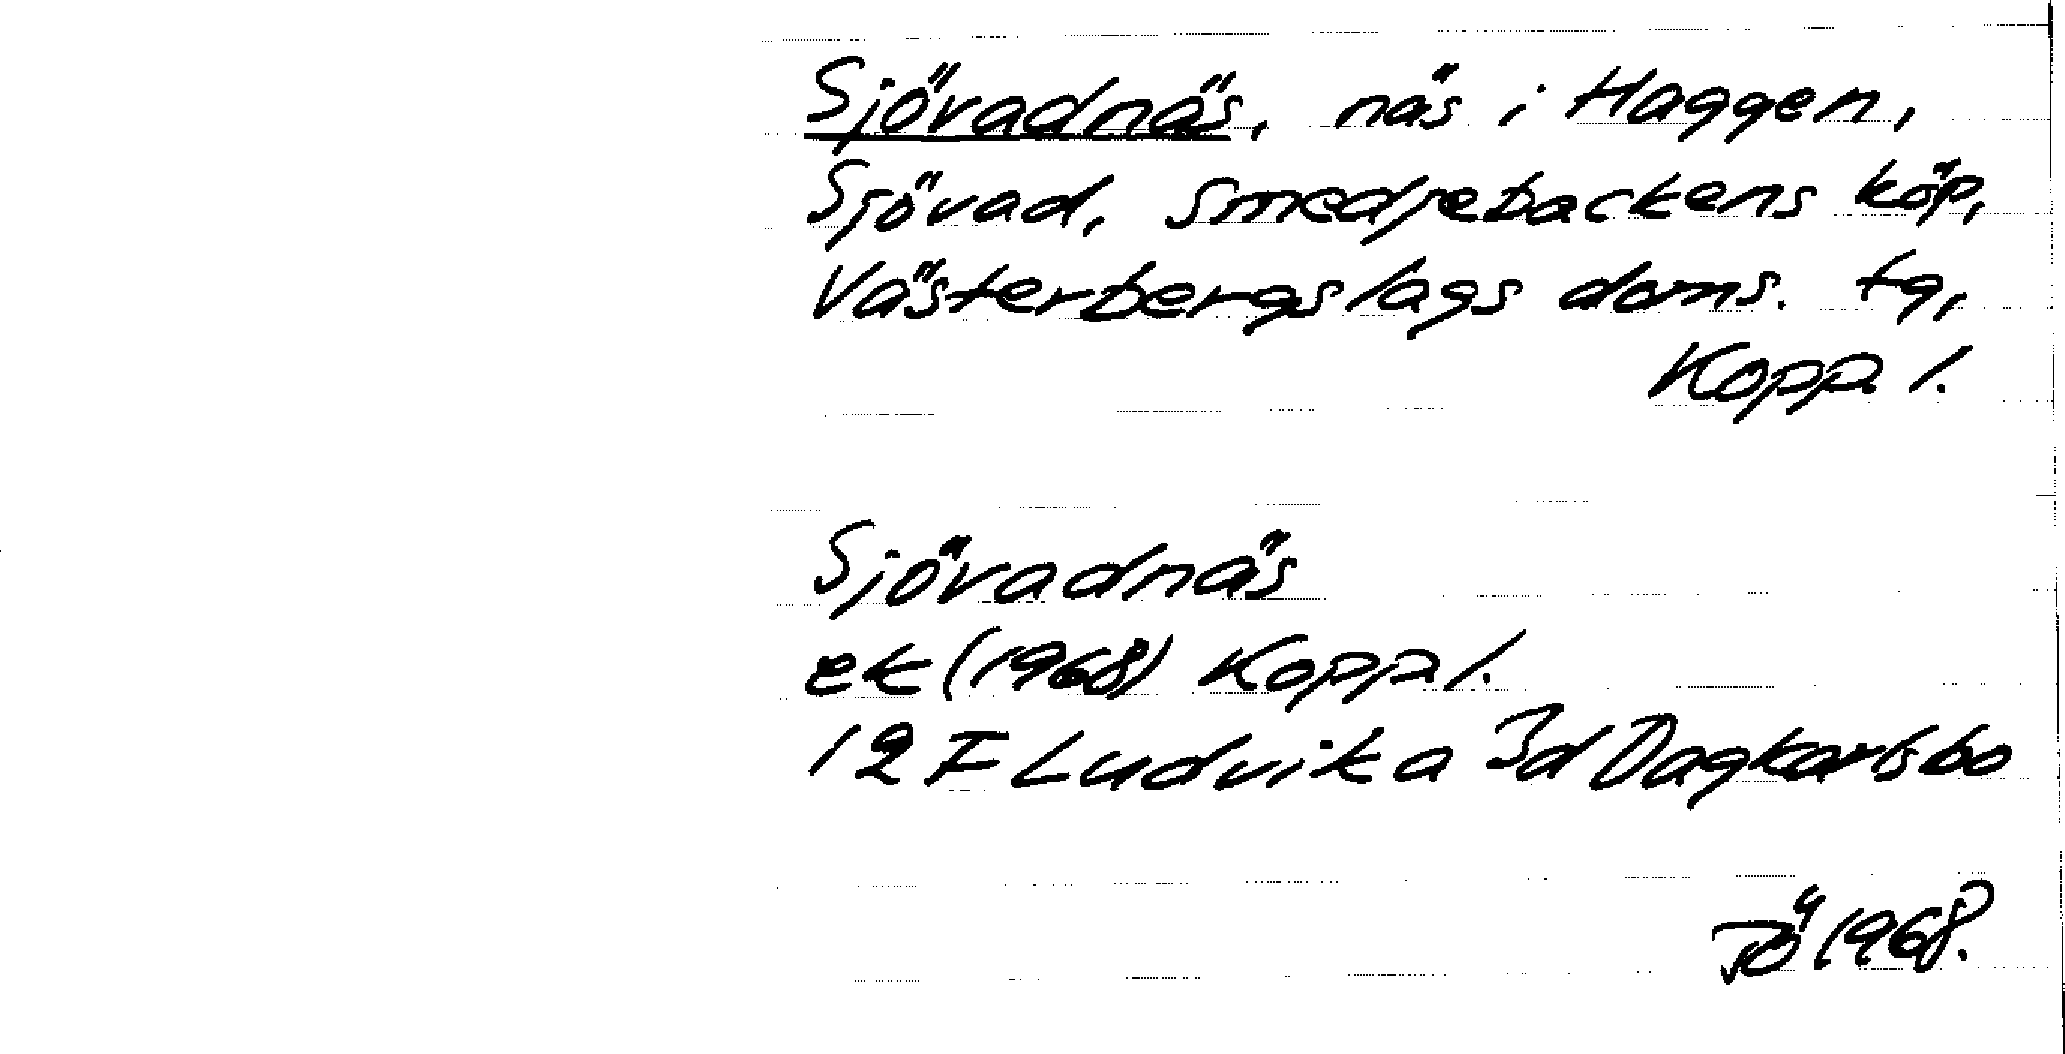 Sjövadnäs, näs i Haggen,
Sjövad, Smedjebackens köp,
Västerbergslags doms. tg,
Kopp l.
Sjövadnäs
ek (1968) Kopp l.
12 F Ludvika 3d Dagkarlsbo
JÖ 1968.